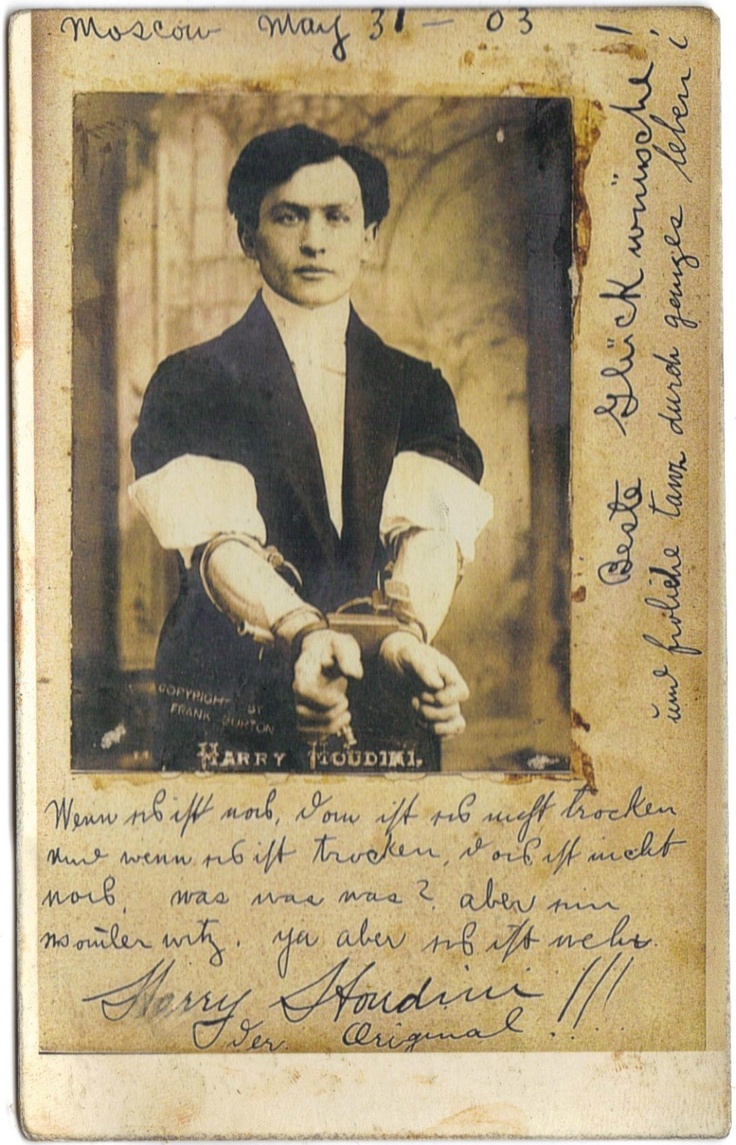 Moscow May 31 – 03
Beste Glück wünsche!
und fröliche tanz durch ganzes leben!
COPYRIGHT BY
FRANK BURTON
HARRY HOUDINI.
Wenn es ist nass, dan ist es nicht trocken
und wenn es ist trocken, es ist nicht
nass, was was was? aber ein
witz. ya aber es ist
Harry Houdini !!!
Der Original